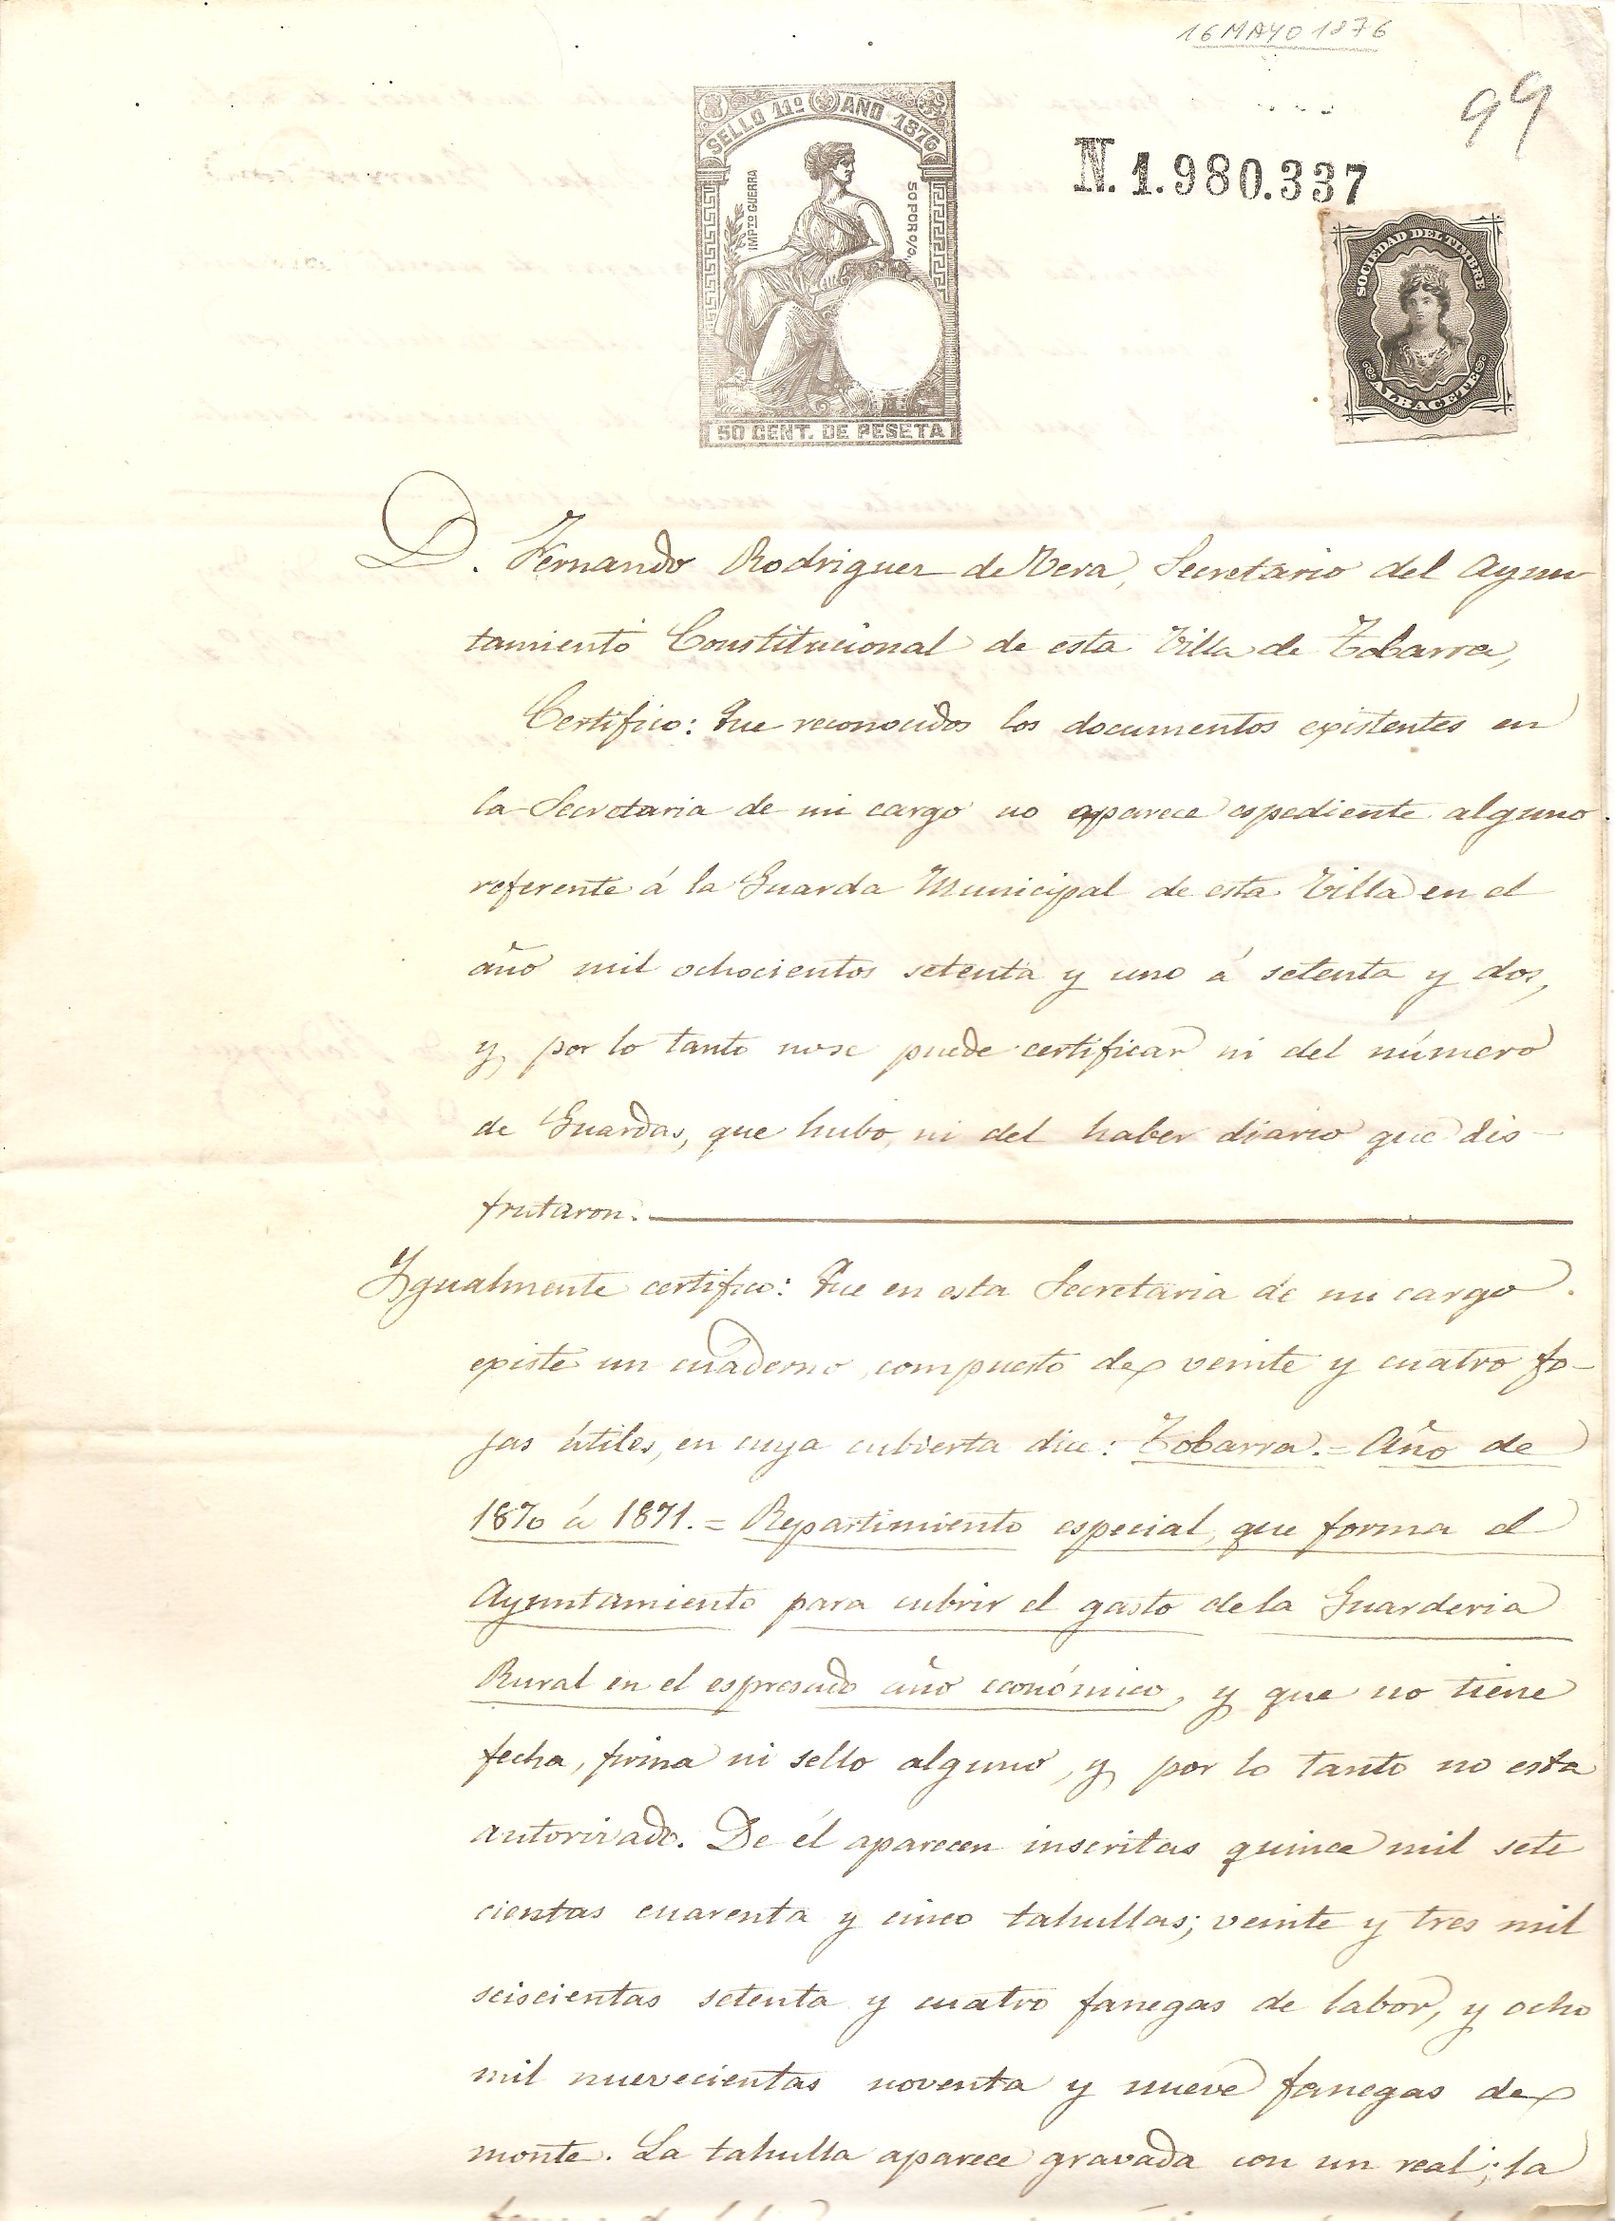 16 MAYO 1876
99
SELLO 11º AÑO 1876
IMPTO GUERRA
50 POR O/O
50 CENT. DE PESETA
N. 1.980.337
SOCIEDAD DEL TIMBRE
ALBACETE
D. Fernando Rodriguez de Vera, Secretario del Ayun
tamiento Constitucional de esta Villa de Tobarra,
Certifico: Que reconocidos los documentos existentes en
la Secretaria de mi cargo no aparece espediente alguno
referente á la Guarda Municipal de esta Villa en el
año mil ochocientos setenta y uno á setenta y dos,
y por lo tanto no se puede certificar ni del número
de Guardas, que hubo, ni del haber diario que dis-
frutaron.
Ygualmente certifico: Que en esta Secretaria de mi cargo
existe un cuaderno, compuesto de veinte y cuatro fo-
jas útiles, en cuya cubierta dice: Tobarra. = Año de
1870 á 1871. = Repartimiento especial, que forma el
Ayuntamiento para cubrir el gasto de la Guarderia
Rural en el espresado año económico, y que no tiene
fecha, firma ni sello alguno, y por lo tanto no esta
autorizado. De él aparecen inscritas quince mil sete
cientas cuarenta y cinco tahullas; veinte y tres mil
seiscientas setenta y cuatro fanegas de labor, y ocho
mil nuevecientas noventa y nueve fanegas de
monte. La tahulla aparece gravada con un real; la